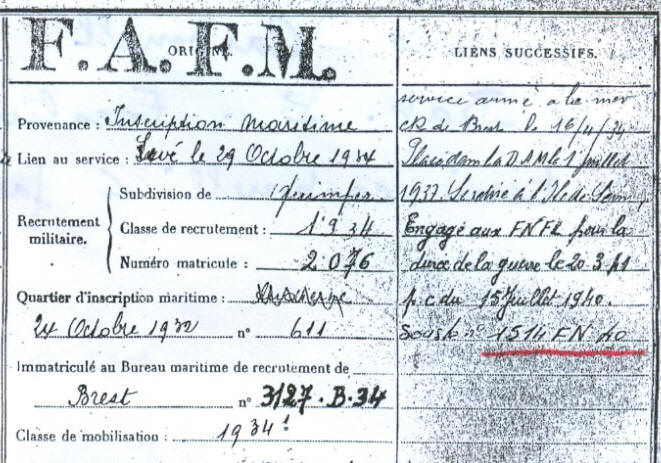 F.A.F.M.
ORIGINE
Provenance : Inscription maritime
Lien au service : Levé le 29 Octobre 1934
Recrutement militaire.
Subdivision de Quimper
Classe de recrutement : 1934
Numéro matricule : 2.076
Quartier d'inscription maritime :
24 Octobre 1932 n° 611
Immatriculé au Bureau maritime de recrutement de
Brest n° 3127.B.34
Classe de mobilisation : 1934
LIENS SUCCESSIFS.
service armé à la mer
de Brest le 16/4/34
Placé dans la DAM le 1 juillet
1937. à l'Ile de Sein
Engagé aux FNFL pour la
durée de la guerre le 20.3.41
p.c du 15 Juillet 1940.
Sous le n° 1514 FN 40